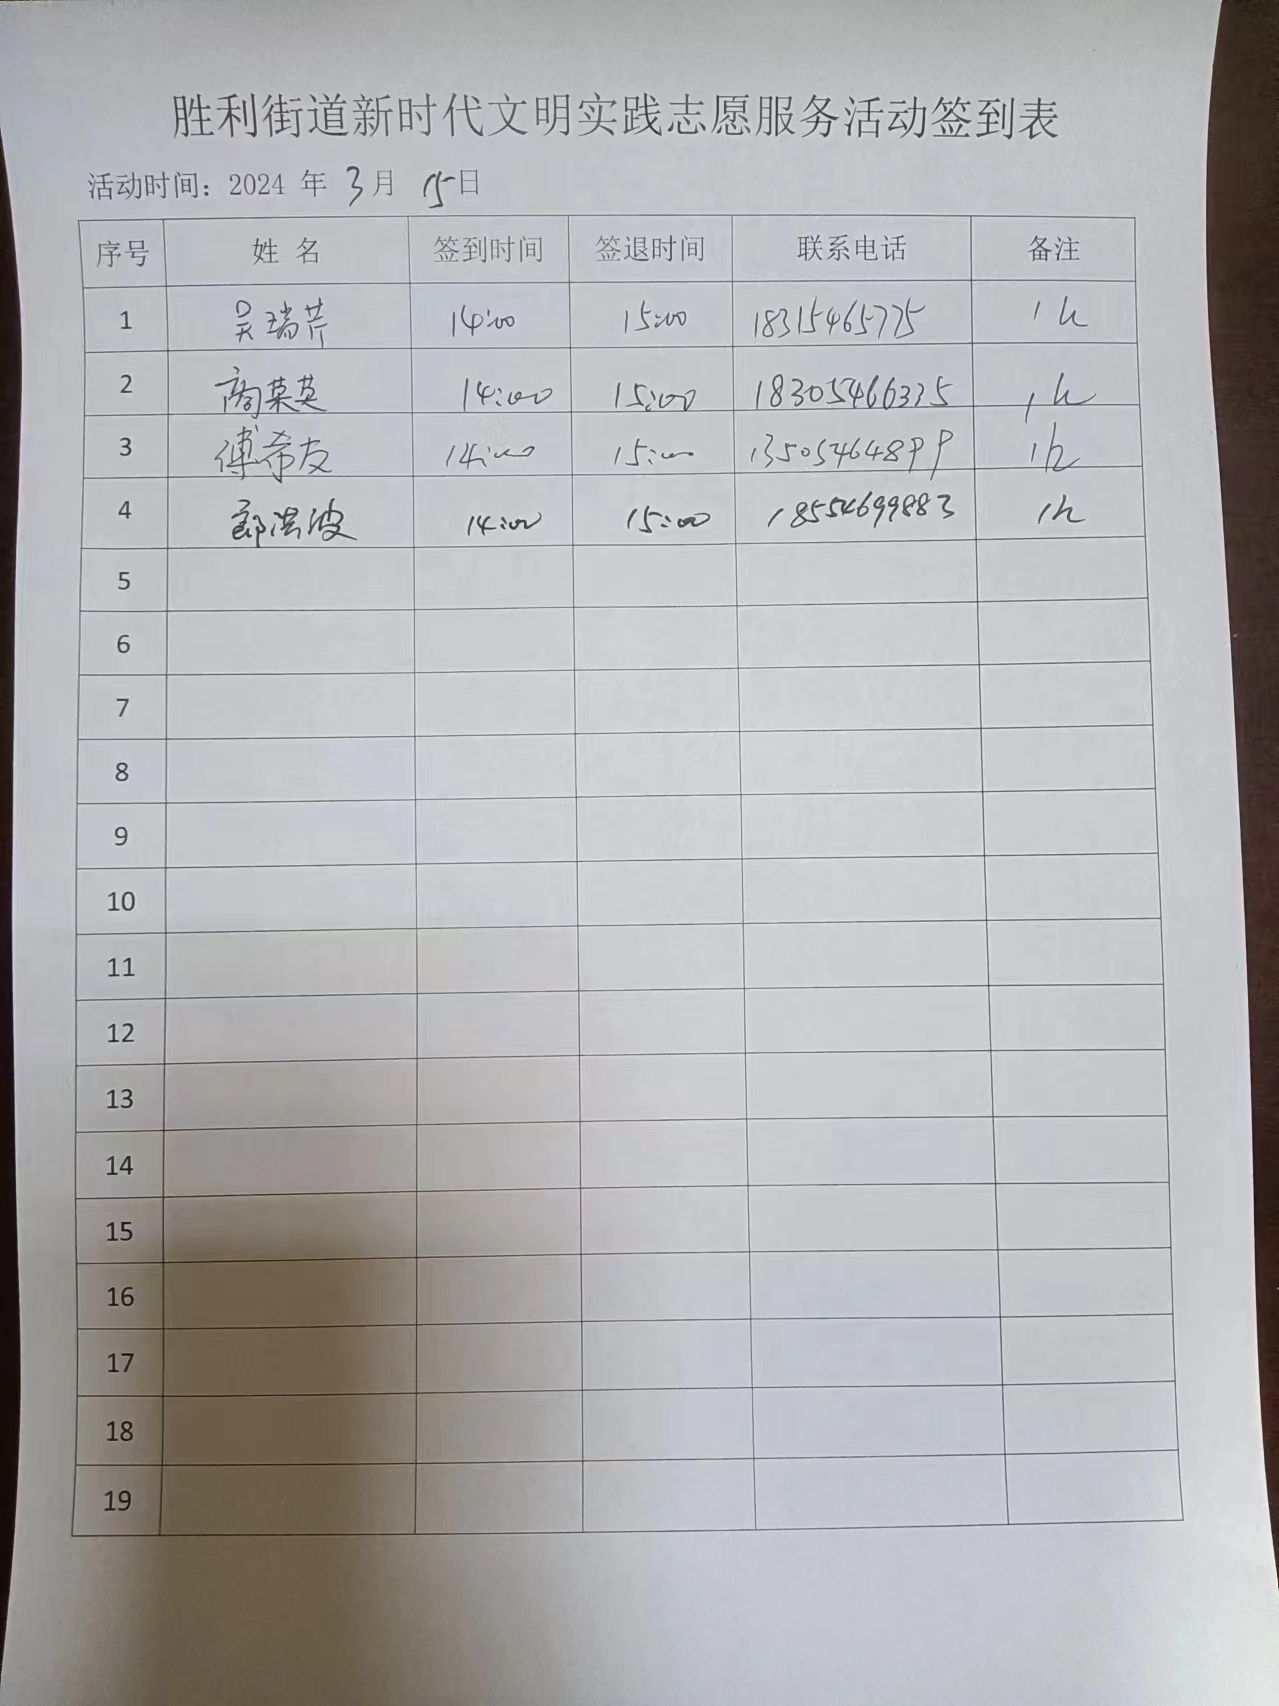 胜利街道新时代文明实践志愿服务活动签到表
活动时间：2024 年 3月 15日
序号 姓 名 签到时间 签退时间 联系电话 备注
1 吴瑞芹 14:00 15:00 18315465775 1h
2 商菜英 14:00 15:00 18305466335 1h
3 傅希友 14:00 15:00 13505464899 1h
4 郭洪波 14:00 15:00 18554699883 1h
5
6
7
8
9
10
11
12
13
14
15
16
17
18
19